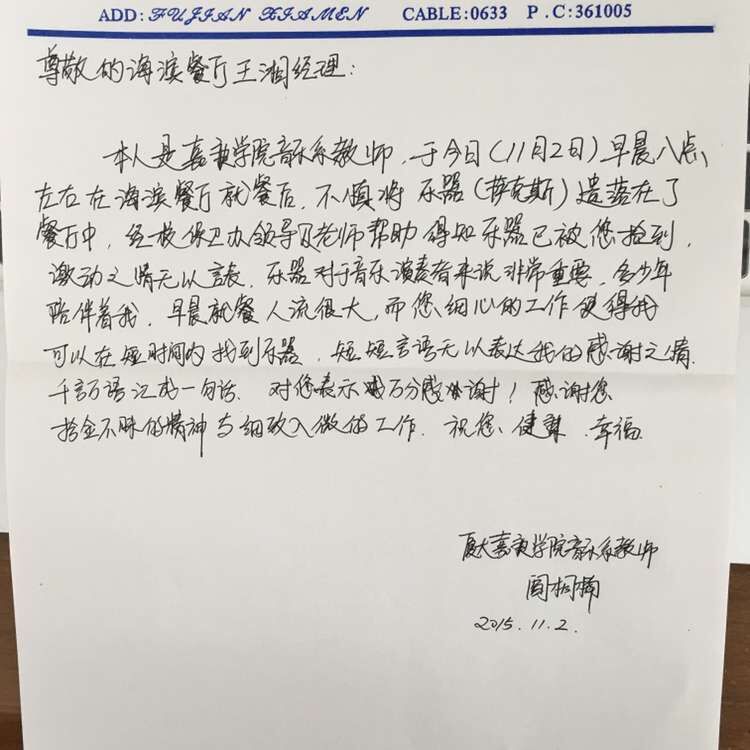 ADD: FUJIAN XIAMEN CABLE:0633 P.C:361005
尊敬的海滨餐厅王湘经理：
本人是嘉庚学院音乐系教师，于今日(11月2日)早晨八点
左右在海滨餐厅就餐后，不慎将乐器(萨克斯)遗落在了
餐厅中，经校保卫办领导及老师帮助得知乐器已被您捡到，
激动之情无以言表，乐器对于音乐演奏者来说非常重要，多少年
陪伴着我，早晨就餐人流很大，而您细心的工作使得我
可以在短时间内找到乐器，短短言语无以表达我的感谢之情，
千言万语汇成一句话，对您表示万分感谢！感谢您
拾金不昧的精神与细致入微的工作，祝您、健康、幸福
厦大嘉庚学院音乐系教师
桐楠
2015.11.2.